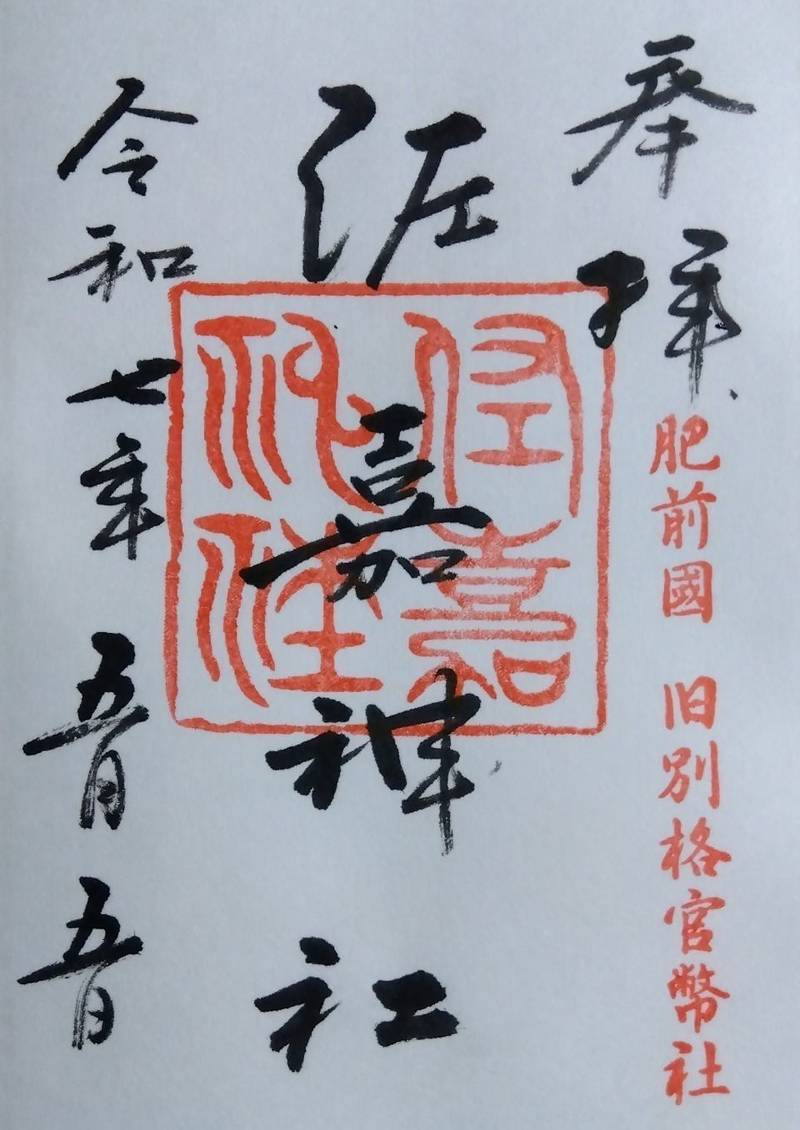 奉拝
肥前國 旧別格官幣社
佐嘉神社
佐嘉神社
令和七年五月五日